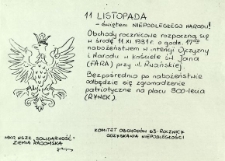 11 LISTOPADA
- świętem NIEPODLEGŁEGO NARODU!
Obchody rocznicowe rozpoczną się
w środę 11.XI.1981 r. o godz. 17⁰⁰
nabożeństwem w intencji Ojczyzny
i Narodu w kościele św. Jana
(FARA) przy ul. Rwańskiej.
Bezpośrednio po nabożeństwie
odbędzie się zgromadzenie
patriotyczne na placu 800-lecia
(RYNEK).
KOMITET OBCHODÓW 63 ROCZNICY
ODZYSKANIA NIEPODLEGŁOŚCI
NSZZ "SOLIDARNOŚĆ"
ZIEMIA RADOMSKA